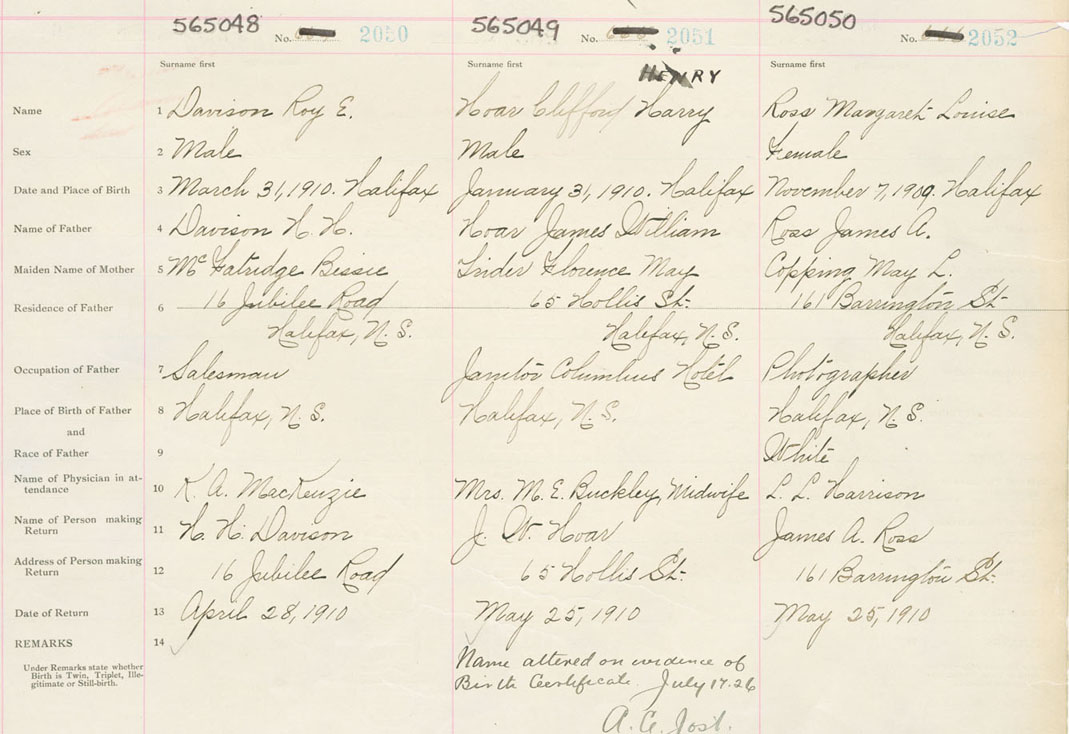 565048 No. 2050 565049 No. 2051 565050 No. 2052
Surname first Surname first HENRY Surname first
Name 1 Davison Roy E. Hoar Clifford Harry Ross Margaret Louise
Sex 2 Male Male Female
Date and Place of Birth 3 March 31, 1910. Halifax January 31, 1910. Halifax November 7, 1909. Halifax
Name of Father 4 Davison H. H. Hoar James William Ross James A.
Maiden Name of Mother 5 McFatridge Bessie Linder Florence May Copping May L.
Residence of Father 6 16 Jubilee Road 65 Hollis St. 161 Barrington St.
Halifax, N.S. Halifax, N.S. Halifax, N.S.
Occupation of Father 7 Salesman Janitor Columbus Hotel Photographer
Place of Birth of Father 8 Halifax, N.S. Halifax, N.S. Halifax, N.S.
and
Race of Father 9 White
Name of Physician in at-
tendance 10 K. A. MacKenzie Mrs. M. E. Buckley, Midwife L. L. Harrison
Name of Person making
Return 11 H. H. Davison J. W. Hoar James A. Ross
Address of Person making
Return 12 16 Jubilee Road 65 Hollis St. 161 Barrington St.
Date of Return 13 April 28, 1910 May 25, 1910 May 25, 1910
REMARKS 14
Under Remarks state whether
Birth is Twin, Triplet, Ille-
gitimate or Still-birth.
Name altered on evidence of
Birth Certificate July 17. 26
A. C. Jost.